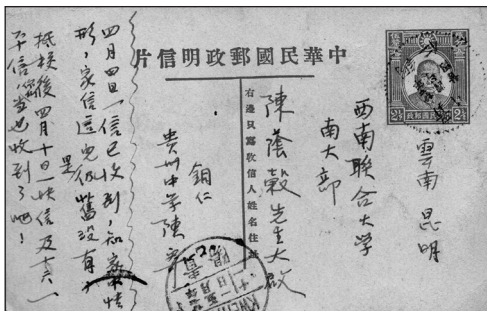 中華民國郵政明信片
右邊只寫收信人姓名住址
雲南 昆明
西南聯合大学
南大部
陳蔭穀先生大啟
銅仁
貴州中学陳
四月四日一信已收到,知家中情
形,家信匯兌仍舊沒有,
抵校後四月十日一快信及十六一
平信,當也收到了吧!